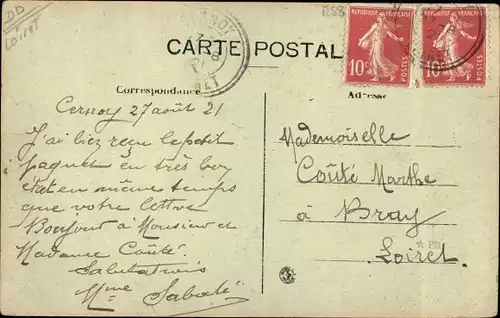 DD
Loiret
1288
CARTE POSTALE
REPUBLIQUE FRANÇAISE
10c POSTES
REPUBLIQUE FRANÇAISE
10c POSTES
Correspondance
Adresse
Cernoy 27 août 21
J'ai bien reçu le petit
paquet en très bon
état en même temps
que votre lettre
Bonjour à Monsieur et
Madame Coûté.
Salutations
Mme Sabaté
Mademoiselle
Coûté Marthe
à Bray
Loiret